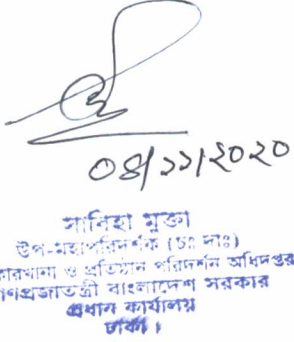 ০৪/১১/২০২০
সাবিহা মুক্তা
উপ-মহাপরিদর্শক (চঃ দাঃ)
কারখানা ও প্রতিষ্ঠান পরিদর্শন অধিদপ্তর
গণপ্রজাতন্ত্রী বাংলাদেশ সরকার
প্রধান কার্যালয়
ঢাকা।